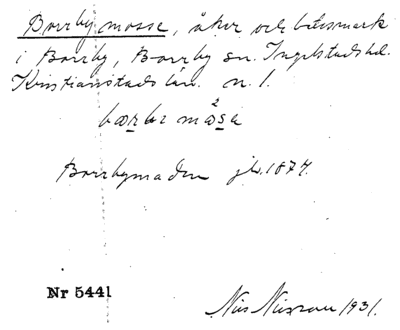 Borrby mosse, åker och betesmark
i Borrby, Borrby sn. Ingelstads hd.
Kristianstads län. n. 1.
Borrbymaden jb. 1874.
Nr 5441
Nils Nilsson 1931.